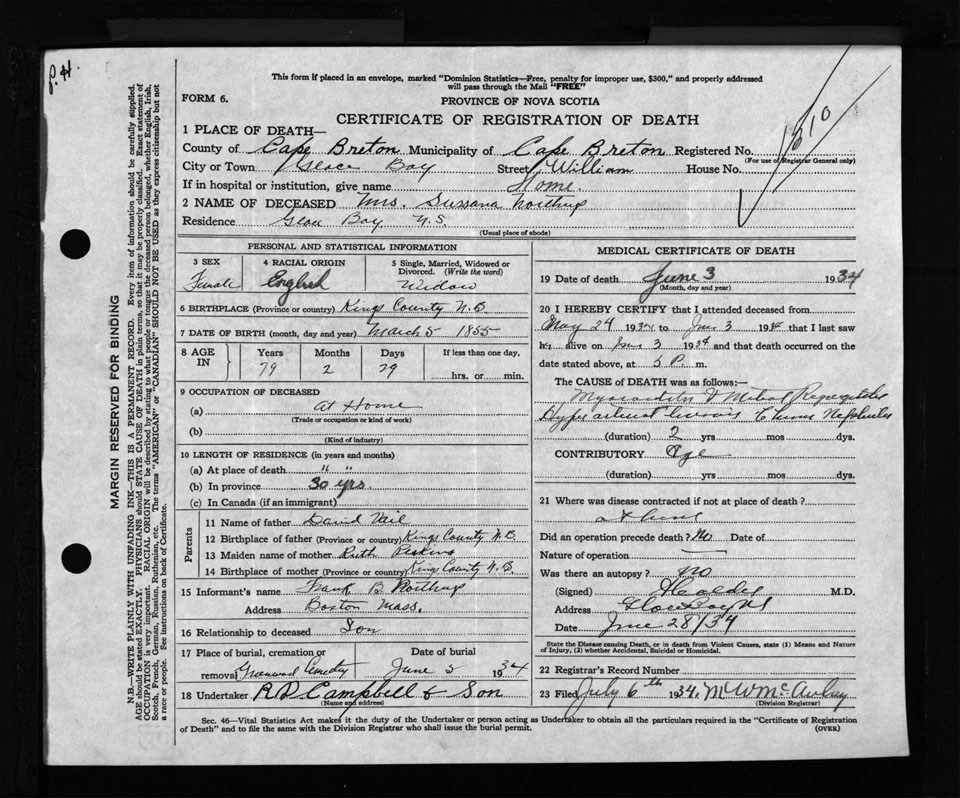 P. H.
1510
This form if placed in an envelope, marked "Dominion Statistics—Free, penalty for improper use, $300," and properly addressed
will pass through the Mail "FREE"
FORM 6.
PROVINCE OF NOVA SCOTIA
CERTIFICATE OF REGISTRATION OF DEATH
1 PLACE OF DEATH—
County of Cape Breton Municipality of Cape Breton Registered No.
(For use of Registrar General only)
City or Town Glace Bay Street William House No.
If in hospital or institution, give name Home.
2 NAME OF DECEASED Mrs. Sussana Northup
Residence Glace Bay N.S.
(Usual place of abode)
PERSONAL AND STATISTICAL INFORMATION
3 SEX 4 RACIAL ORIGIN 5 Single, Married, Widowed or
Divorced. (Write the word)
Female English Widow
6 BIRTHPLACE (Province or country) Kings County N.B.
7 DATE OF BIRTH (month, day and year) March 5 1855
8 AGE IN Years Months Days If less than one day,
79 2 29 hrs. or min.
9 OCCUPATION OF DECEASED
(a) At Home
(Trade or occupation or kind of work)
(b)
(Kind of industry)
10 LENGTH OF RESIDENCE (in years and months)
(a) At place of death " "
(b) In province 30 yrs.
(c) In Canada (if an immigrant)
Parents
11 Name of father David Vail
12 Birthplace of father (Province or country) Kings County N.B.
13 Maiden name of mother Ruth Perkins
14 Birthplace of mother (Province or country) Kings County N.B.
15 Informant's name Frank B Northup
Address Boston Mass.
16 Relationship to deceased Son
17 Place of burial, cremation or Date of burial
removal Greenwood Cemetery June 5 1934
18 Undertaker A.D. Campbell & Son
(Name and address)
MEDICAL CERTIFICATE OF DEATH
19 Date of death June 3 1934
(Month, day and year)
20 I HEREBY CERTIFY that I attended deceased from
May 24 1934 to June 3 1934 that I last saw
h alive on June 3 1934 and that death occurred on the
date stated above, at 5 P. m.
The CAUSE OF DEATH was as follows:—
Myocarditis & Mitral Regurgitation
Chronic Nephritis
(duration) 2 yrs mos dys.
CONTRIBUTORY Age
(duration) yrs mos dys.
21 Where was disease contracted if not at place of death?
at home
Did an operation precede death? No Date of
Nature of operation
Was there an autopsy? no
(Signed) M.D.
Address Glace Bay NS
Date June 28/34
State the Disease causing Death, or in death from Violent Causes, state (1) Means and Nature
of Injury, (2) whether Accidental, Suicidal or Homicidal.
22 Registrar's Record Number
23 Filed July 6th 1934. M W McAulay
(Division Registrar)
Sec. 46—Vital Statistics Act makes it the duty of the Undertaker or person acting as Undertaker to obtain all the particulars required in the "Certificate of Registration
of Death" and to file the same with the Division Registrar who shall issue the burial permit.
(OVER)
MARGIN RESERVED FOR BINDING
N.B.—WRITE PLAINLY WITH UNFADING INK—THIS IS A PERMANENT RECORD. Every item of information should be carefully supplied.
AGE should be stated EXACTLY. PHYSICIANS should STATE CAUSE OF DEATH in plain terms, so that it may be properly classified. Exact statement of
OCCUPATION is very important. RACIAL ORIGIN will be described by stating to what people or tongue the deceased person belonged, whether English, Irish,
Scotch, French, German, Russian, Ruthenian, etc. The terms "AMERICAN" or "CANADIAN" SHOULD NOT BE USED as they express citizenship but not
a race or people. See instructions on back of Certificate.